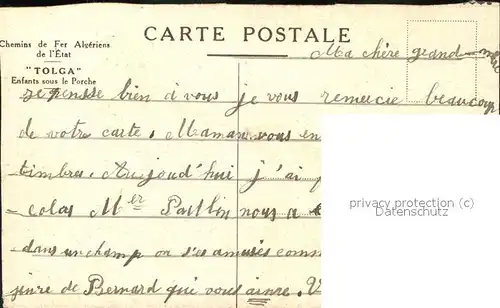 Chemins de Fer Algériens
de l'État
"TOLGA"
Enfants sous le Porche
CARTE POSTALE
Ma chère grand-mère
je pensse bien à vous je vous remercie beaucoup
de votre carte. Maman vous en
timbres. Aujourd'hui j'ai
colas Mer nous a
dans un champ on s'es amusés comm
de Bernard qui vous aime.
privacy protection (c)
Datenschutz